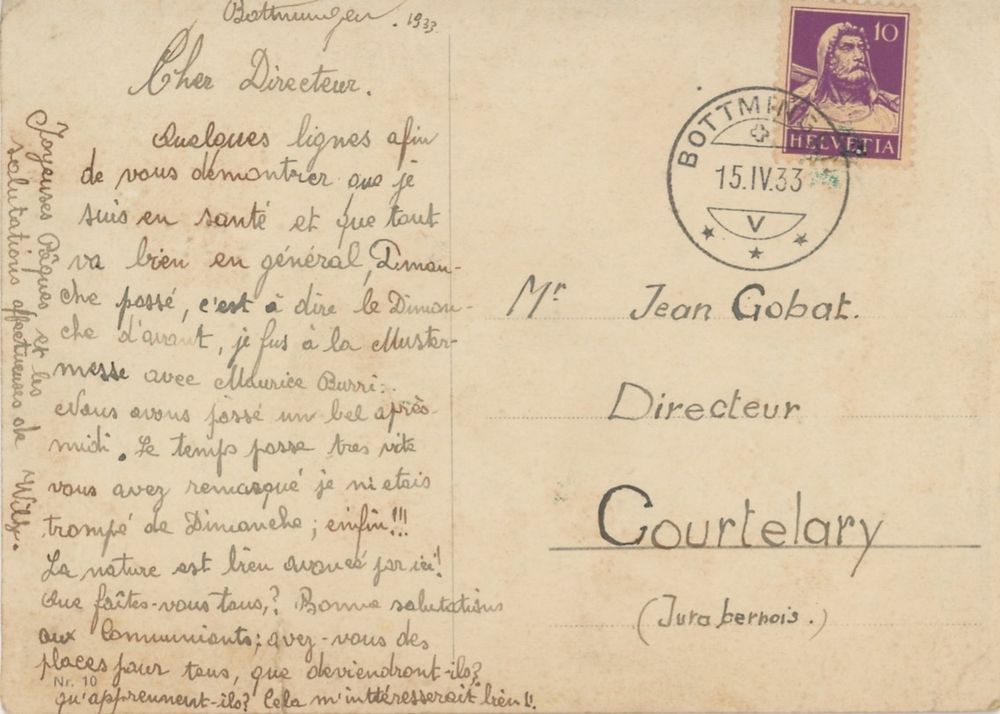 Bottmingen. 1933.
Cher Directeur.
Quelques lignes afin
de vous démontrer que je
suis en santé et que tout
va bien en général, Diman-
che passé, c'est à dire le Diman-
che d'avant, je fus à la Muster-
messe avec Maurice Burri.
Nous avons passé un bel après-
midi. Le temps passe tres vite
vous avez remarqué je m'etais
trompé de Dimanche; enfin!!!
La nature est bien avancé par ici!
Que faîtes-vous tous,? Bonne salutations
aux Communiants; avez-vous des
places pour tous, que deviendront-ils?
qu'apprennent-ils? Cela m'inttéresserait bien!!
Joyeuses Pâques et les
salutations affectueuses de Willy.
Nr. 10
10
HELVETIA
BOTTMINGEN
15.IV.33
V
Mr Jean Gobat.
Directeur
Courtelary
(Jura bernois.)